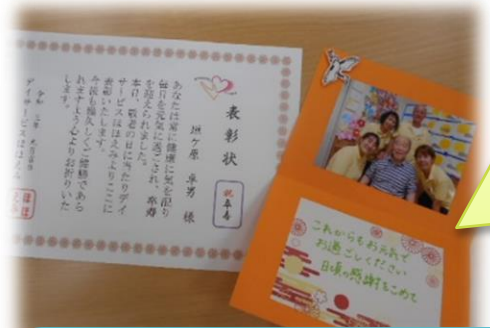 表彰状
垣ケ原 卓男 様
あなたは常に健康に気を配り
毎日を元気に過ごされ、卒寿
を迎えられました。
本日、敬老の日に当たりデイ
サービスほほえみよりここに
表彰いたします。
今後も幾久しくご健勝であら
れますよう心よりお祈りいた
します。
祝
卒寿
これからもお元気で
お過ごしください
日頃の感謝をこめて